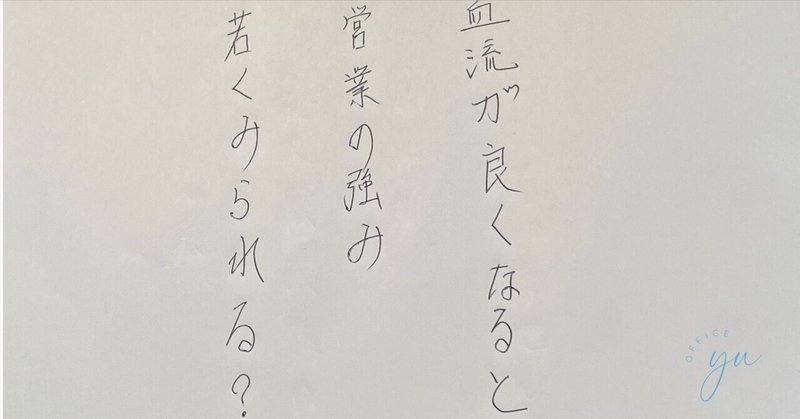 血流が良くなると
営業の強み
若くみられる?
OFFICE
yu